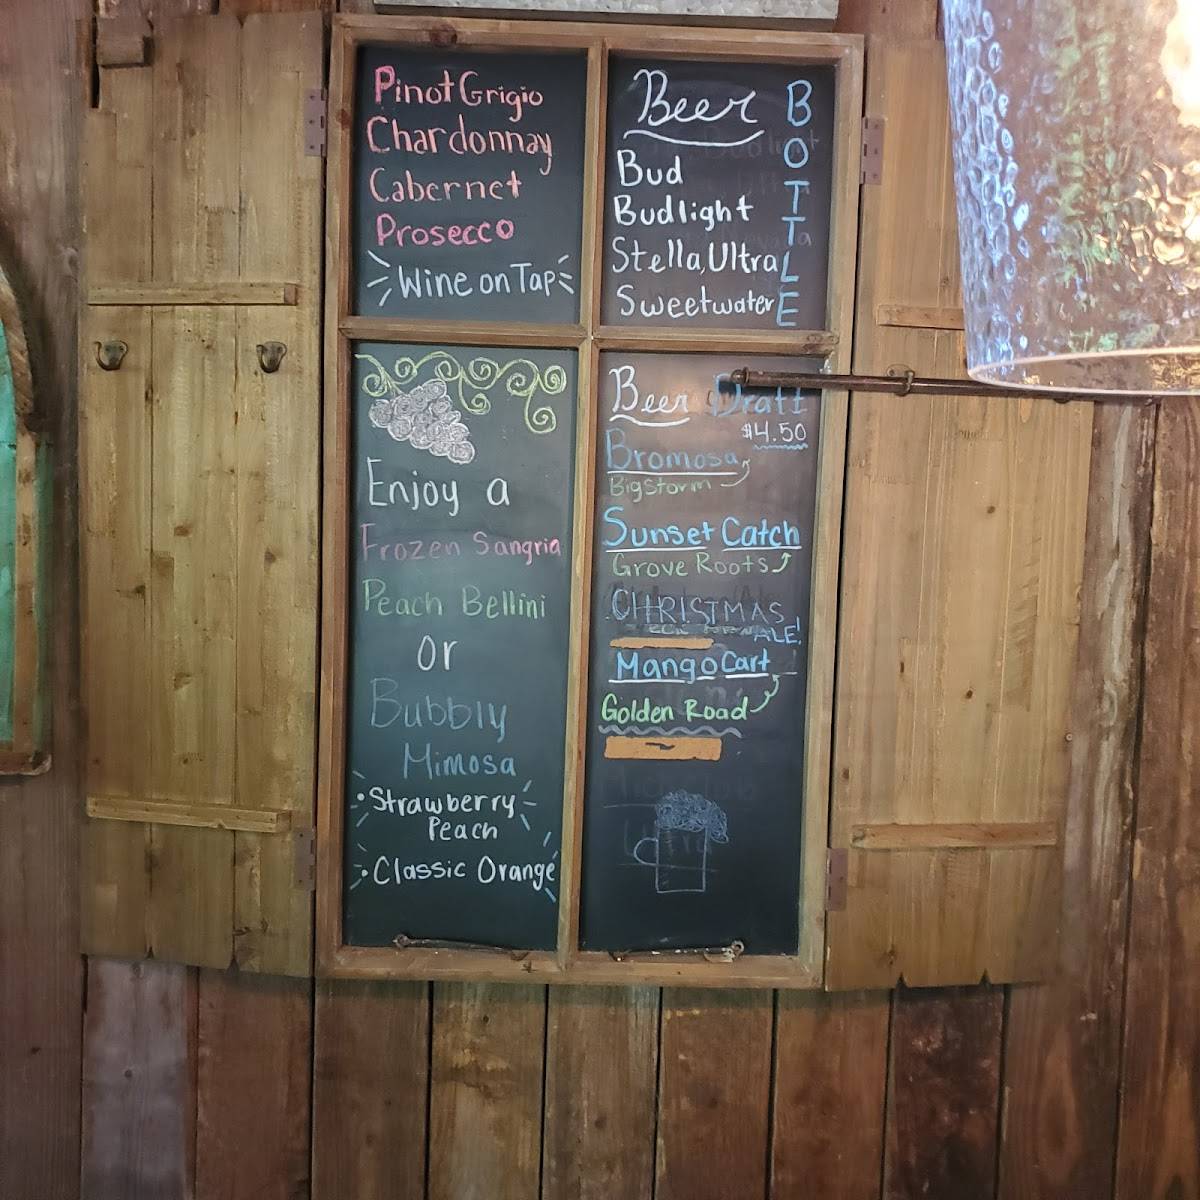 Pinot Grigio
Chardonnay
Cabernet
Prosecco
Wine on Tap
Beer
BOTTLE
Bud
Budlight
Stella, Ultra
Sweetwater
Enjoy a
Frozen Sangria
Peach Bellini
Or
Bubbly
Mimosa
• Strawberry
Peach
• Classic Orange
Beer Draft
$4.50
Bromosa
Big Storm
Sunset Catch
Grove Roots
CHRISTMAS
ALE!
Mango Cart
Golden Road